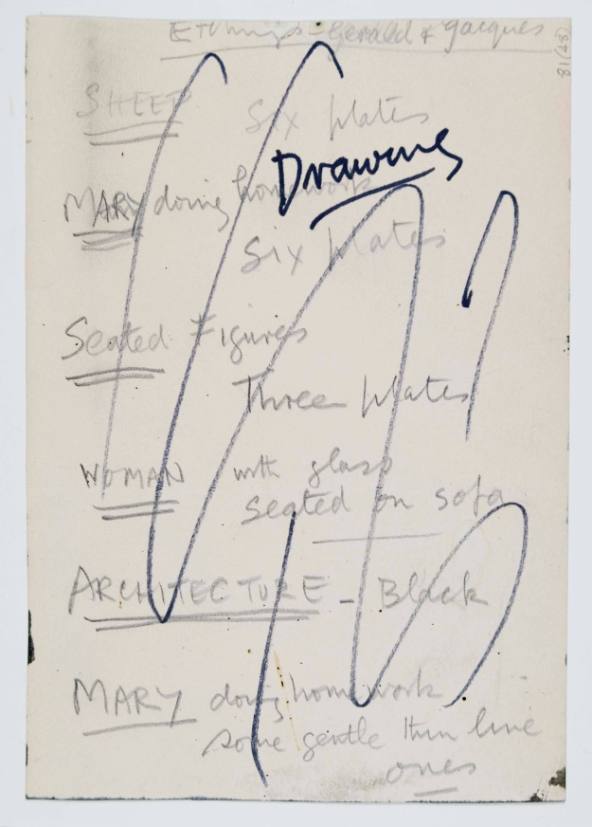 Etchings - Gerald & Jacques
81(28)
SHEEP Six plates
Drawing
MARY doing homework
Six plates
Seated Figures
Three plates
WOMAN with glass
seated on sofa
ARCHITECTURE - Black
MARY doing homework
some gentle thin line
ones